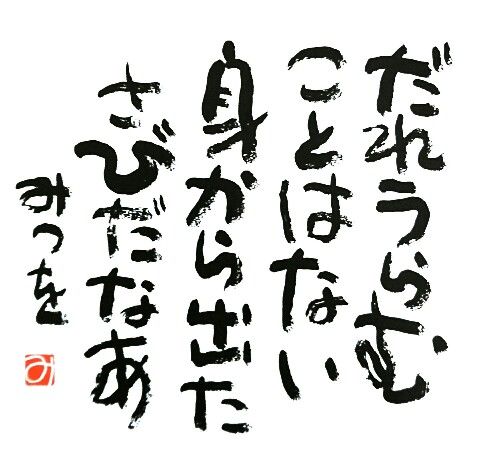 だれうらむ
ことはない
身から出た
さびだなあ
みつを
み